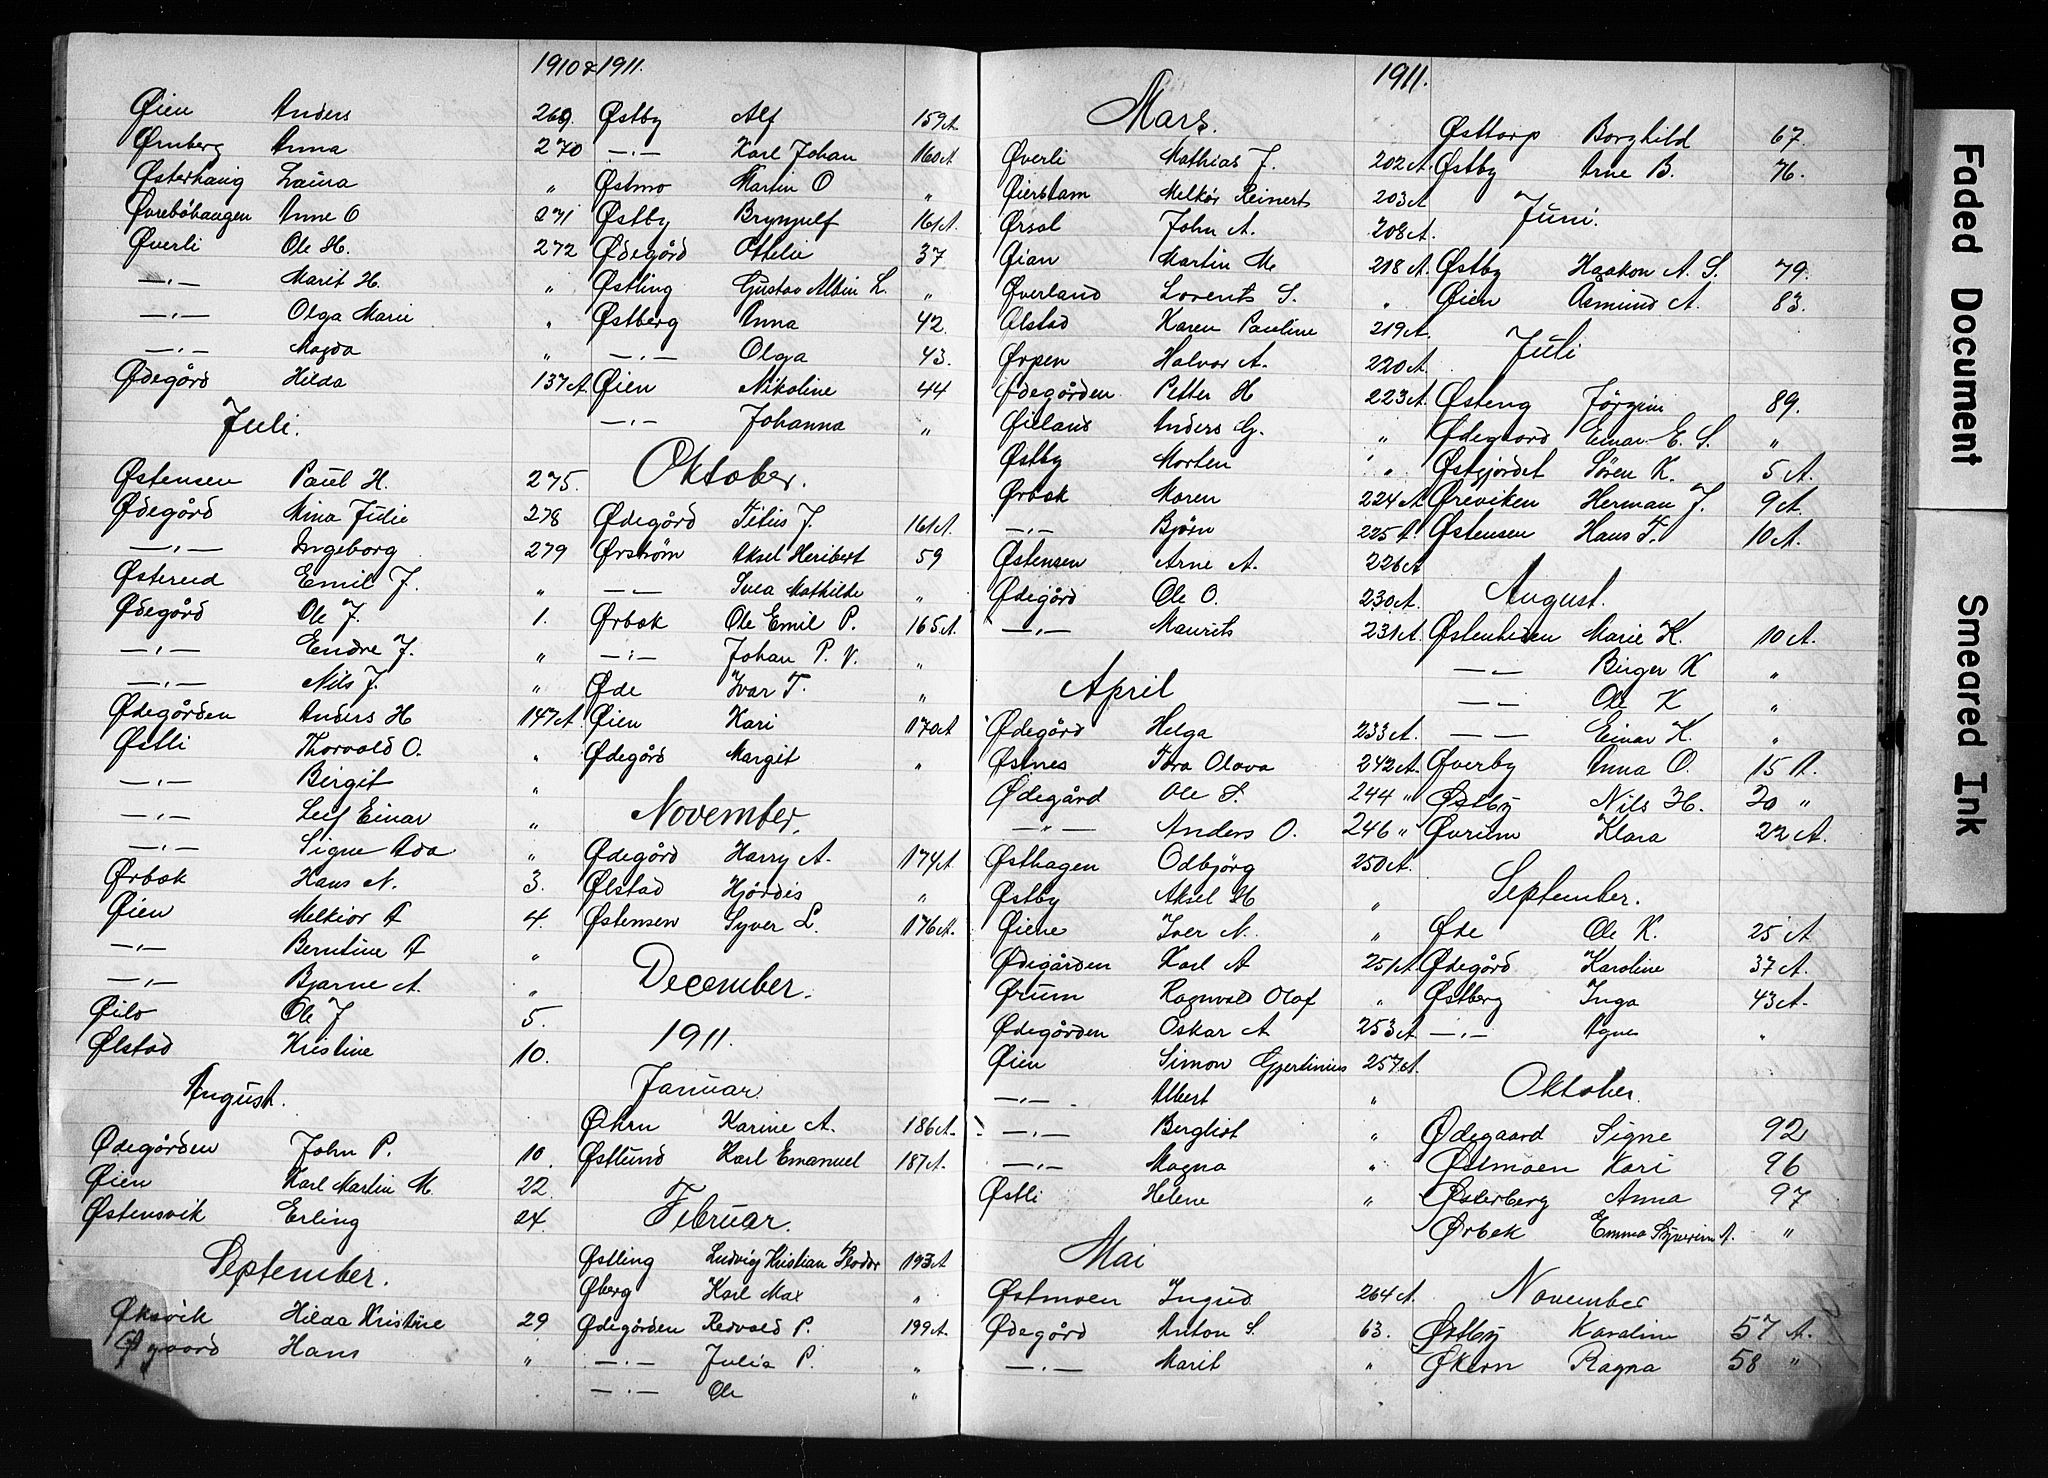 1910 & 1911.
Øien Anders 269.
Ørnberg Anna 270
Østerhaug Laura "
Øvrebøhaugen Anne O 271
Øverli Ole H. 272
—"— Marit H. "
—"— Olga Marie "
—"— Magda "
Ødegård Hilda 137 A.
Juli.
Østensen Paul H. 275.
Ødegård Mina Julie 278
—"— Ingeborg 279
Østereid Emil J. "
Ødegård Ole J. 1.
—"— Endre J. "
—"— Nils J. "
Ødegården Anders H 147 A.
Østli Thorvald O. "
—"— Birgit "
—"— Leif Einar "
—"— Signe Ada "
Ørbæk Hans N. 3.
Øien Melkior A 4.
—"— Berntine A "
—"— Bjarne A. "
Øilo Ole J 5.
Ølstad Kristine 10.
August.
Ødegården John P. 10.
Øien Karl Martin M. 22.
Østensvik Erling 24.
September.
Øksvik Hilda Kristine 29
Øgaard Hans "
Østby Alf 159 A
—"— Karl Johan 160 A
Østmo Martin O "
Østby Brynjulf 161 A.
Ødegård Othelie 37
Østling Gustav Albin L. "
Østberg Anna 42.
—"— Olga 43.
Øien Nikoline 44
—"— Johanna "
Oktober.
Ødegård Titus J. 161 A.
Ørstrøm Aksel Heribert 59
— — Svea Mathilde "
Ørbæk Ole Emil P. 165 A.
—"— Johan P. V. "
Øde Ivar T. "
Øien Kari 170 A
Ødegård Margit "
November.
Ødegård Harry A. 174 A.
Ølstad Hjördis "
Østensen Syver L. 176 A.
December.
1911.
Januar.
Øhrn Karine A. 186 A.
Østlund Karl Emanuel 187 A.
Februar.
Østling Ludvig Kristian Teodor 193 A
Øberg Karl Max "
Ødegården Redvald P. 199 A.
—"— Julia P. "
—"— Ole "
1911.
Mars.
Øverli Mathias J. 202 A.
Øierstam Melkör Reinert 203 A
Ørsal John A. 208 A.
Øian Martin M. 218 A.
Øverland Lorents S. "
Ølstad Karen Pauline 219 A.
Ørpen Halvor A. 220 A.
Ødegården Petter H 223 A.
Øiland Anders G. "
Østby Morten "
Ørbæk Maren 224 A
—"— Bjørn 225 A
Østensen Arne A. 226 A
Ødegård Ole O. 230 A.
—"— Maurits 231 A.
April
Ødegård Helga 233 A.
Østnes Tora Olava 242 A.
Ødegård Ole S. 244 "
—"— Anders O. 246 "
Østhagen Odbjörg 250 A.
Østby Aksel H "
Øiene Iver N. "
Ødegården Karl A 251 A.
Ørum Ragnvald Olaf "
Ødegården Oskar A 253 A
Øien Simon Gjertinius 257 A.
—"— Albert "
—"— Bergliot "
—"— Magna "
Østli Helene "
Mai
Østmoen Ingrid 264 A.
Ødegård Anton S. 63.
—"— Marit "
Østtorp Borghild 67.
Østby Arne B. 76.
Juni.
Østby Haakon A. S. 79.
Øien Asmund A. 83.
Juli
Østeng Jörgine 89.
Ødegaard Einar E. S. "
Østgjordet Sören K. 5 A.
Øreviken Herman J. 9 A.
Østensen Hans T. 10 A.
August.
Østenheden Marie K. 10 A.
—"— Birger K "
—"— Ole K "
— — Einar K. "
Øverby Anna O. 15 A.
Østby Nils H. 20 "
Øvrum Klara 22 A.
September.
Øde Ole K. 25 A
Ødegård Karoline 37 A.
Østberg Inga 43 A.
—"— Agnes "
Oktober.
Ødegaard Signe 92
Østmoen Kari 96
Østerberg Anna 97
Ørbek Emma Syverine A. "
November
Østby Karoline 57 A.
Økern Ragna 58 "
Faded Document
Smeared Ink